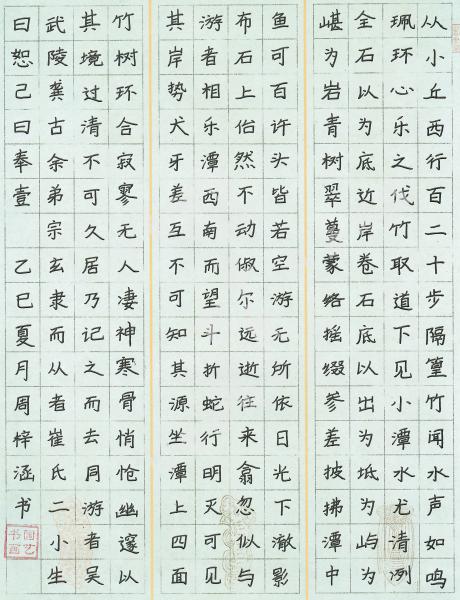 从小丘西行百二十步隔篁竹闻水声如鸣
珮环心乐之伐竹取道下见小潭水尤清冽
全石以为底近岸卷石底以出为坻为屿为
嵁为岩青树翠蔓蒙络摇缀参差披拂潭中
鱼可百许头皆若空游无所依日光下澈影
布石上佁然不动俶尔远逝往来翕忽似与
游者相乐潭西南而望斗折蛇行明灭可见
其岸势犬牙差互不可知其源坐潭上四面
竹树环合寂寥无人凄神寒骨悄怆幽邃以
其境过清不可久居乃记之而去同游者吴
武陵龚古余弟宗玄隶而从者崔氏二小生
曰恕己曰奉壹 乙巳夏月周梓涵书
国艺书画